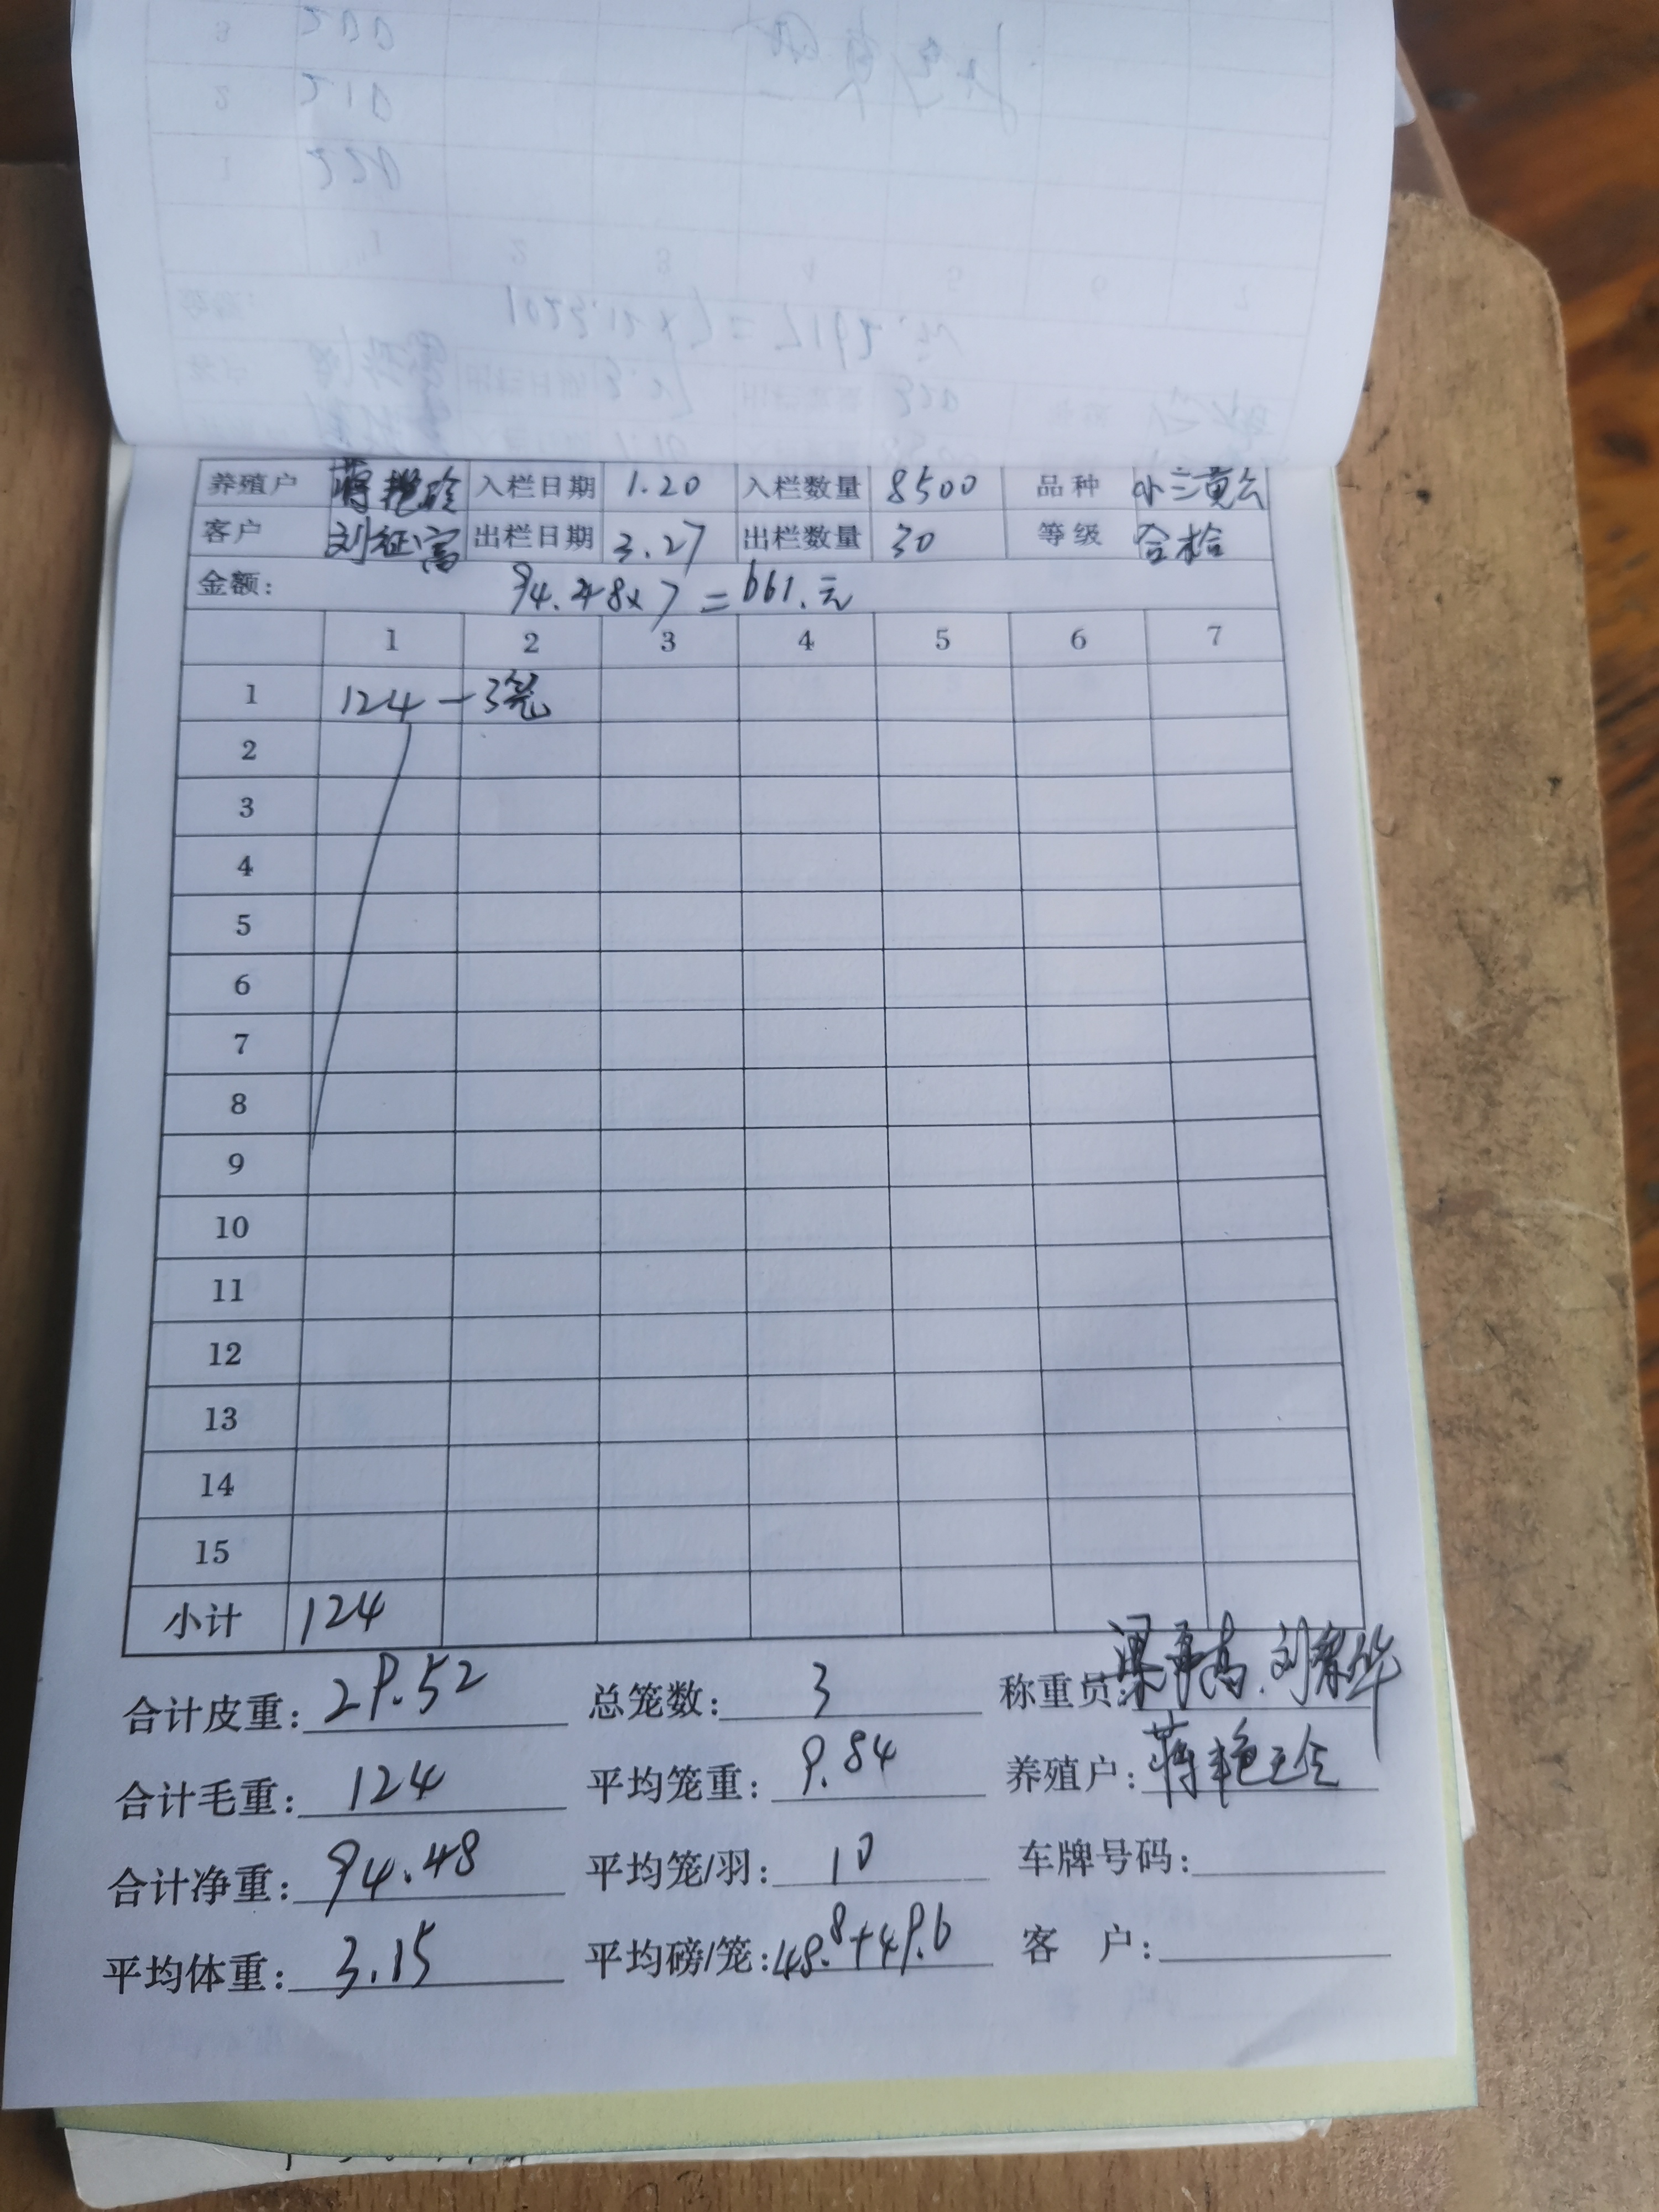 养殖户 蒋艳玲 入栏日期 1.20 入栏数量 8500 品种 小三黄公
客户 刘征富 出栏日期 3.27 出栏数量 30 等级 合格
金额： 94.48x7=661.元
1 2 3 4 5 6 7
1 124 — 3笼
2
3
4
5
6
7
8
9
10
11
12
13
14
15
小计 124
合计皮重： 29.52 总笼数： 3 称重员： 刘 华
合计毛重： 124 平均笼重： 9.84 养殖户： 蒋艳玲
合计净重： 94.48 平均笼/羽： 10 车牌号码：
平均体重： 3.15 平均磅/笼： 48.8+49.6 客 户：